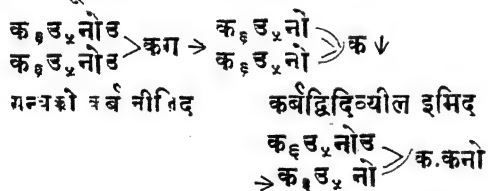 क₆उ₅नोउ
क₆उ₅नोउ > कग → क₆उ₅नो
क₆उ₅नो > क ↓
गन्धको कर्ब नीतिद
कर्बद्विदिव्यील इमिद
क₆उ₅नोउ
→ क₆उ₅ नो > क.कनो